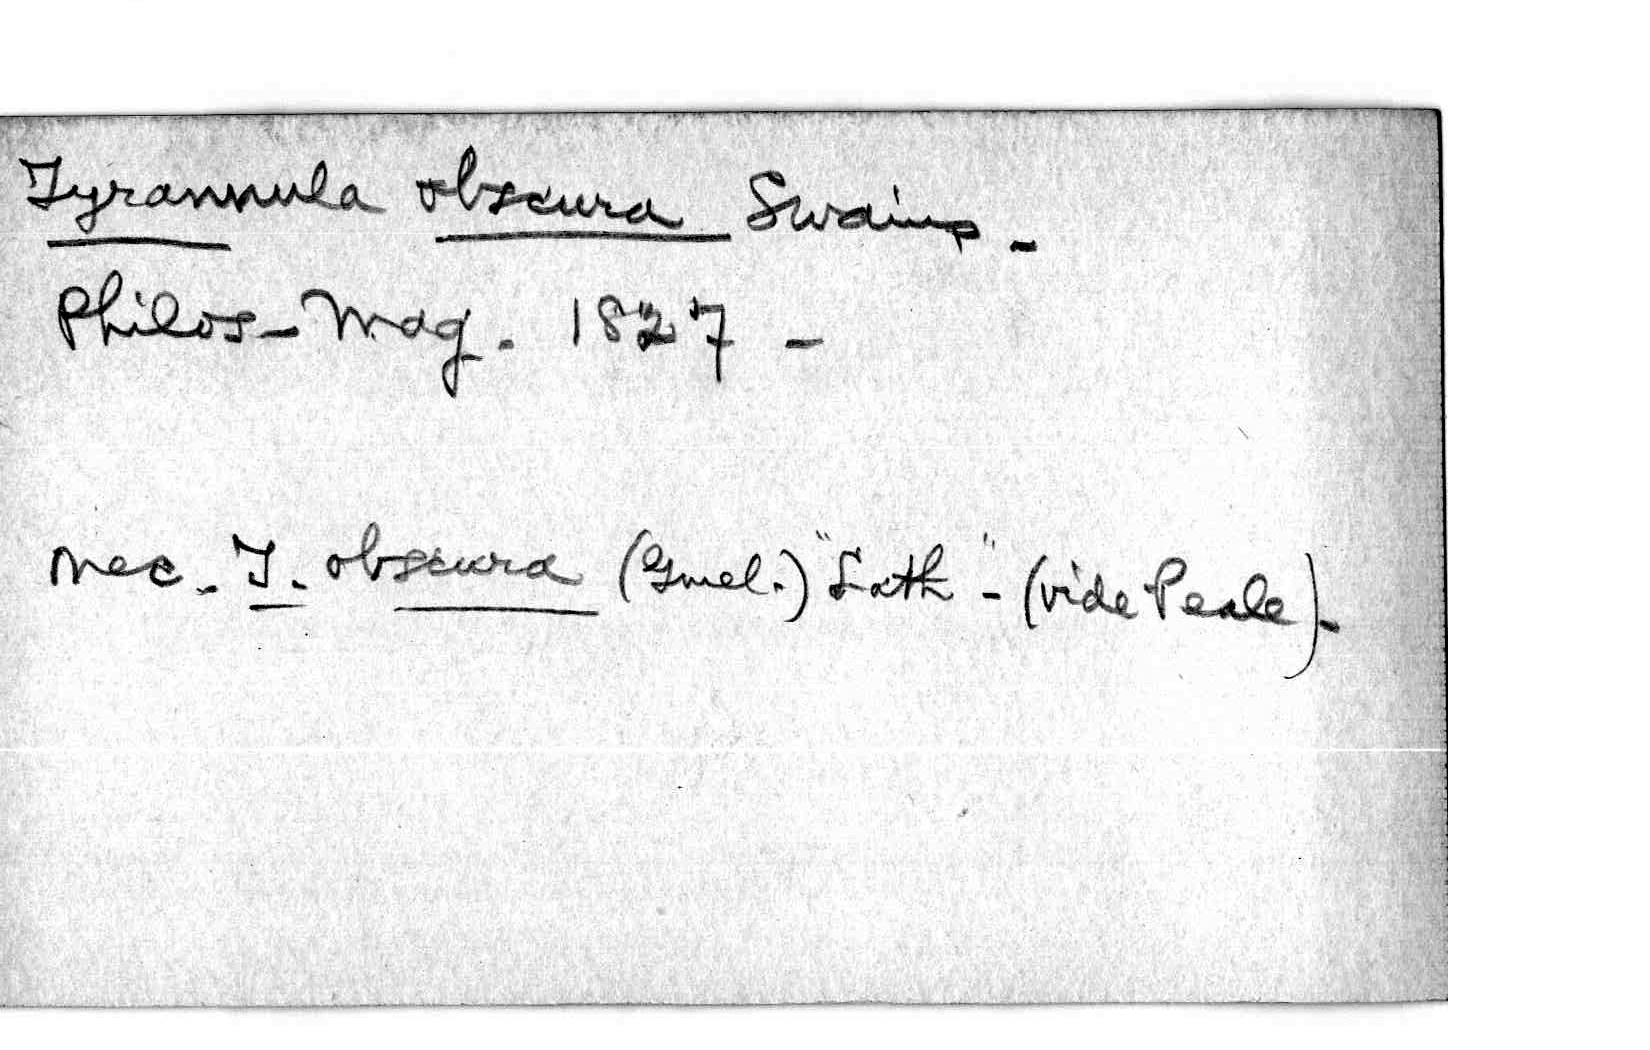 Tyrannula obscura Swains -
Philos - Mag. 1827 -
nec. T. obscura (Gmel.) "Lath" - (vide Peale) -